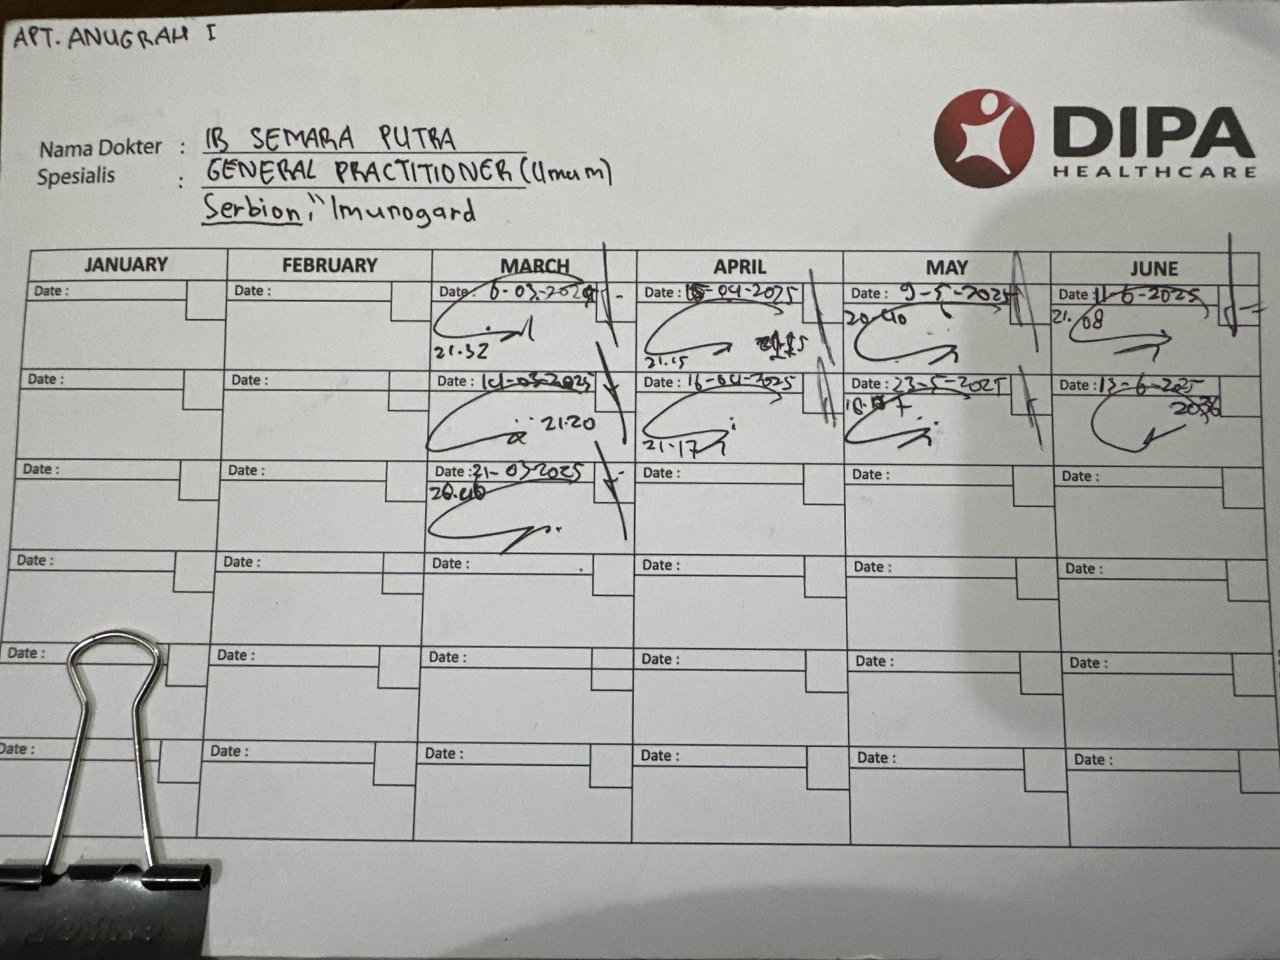 APT. ANUGRAH I
DIPA
HEALTHCARE
Nama Dokter : IB SEMARA PUTRA
Spesialis : GENERAL PRACTITIONER (Umum)
Serbion, Imunogard
JANUARY FEBRUARY MARCH APRIL MAY JUNE
Date : Date : Date : 6-03-2025 Date : -04-2025 Date : 9-5-2025 Date : 11-6-2025
21.32 21.15 20.40 21.08
Date : Date : Date : 14-03-2025 Date : 16-04-2025 Date : 23-5-2025 Date : 13-6-2025
21.20 21.17
Date : Date : Date : 21-03-2025 Date : Date : Date :
20.40
Date : Date : Date : Date : Date : Date :
Date : Date : Date : Date : Date : Date :
Date : Date : Date : Date : Date : Date :